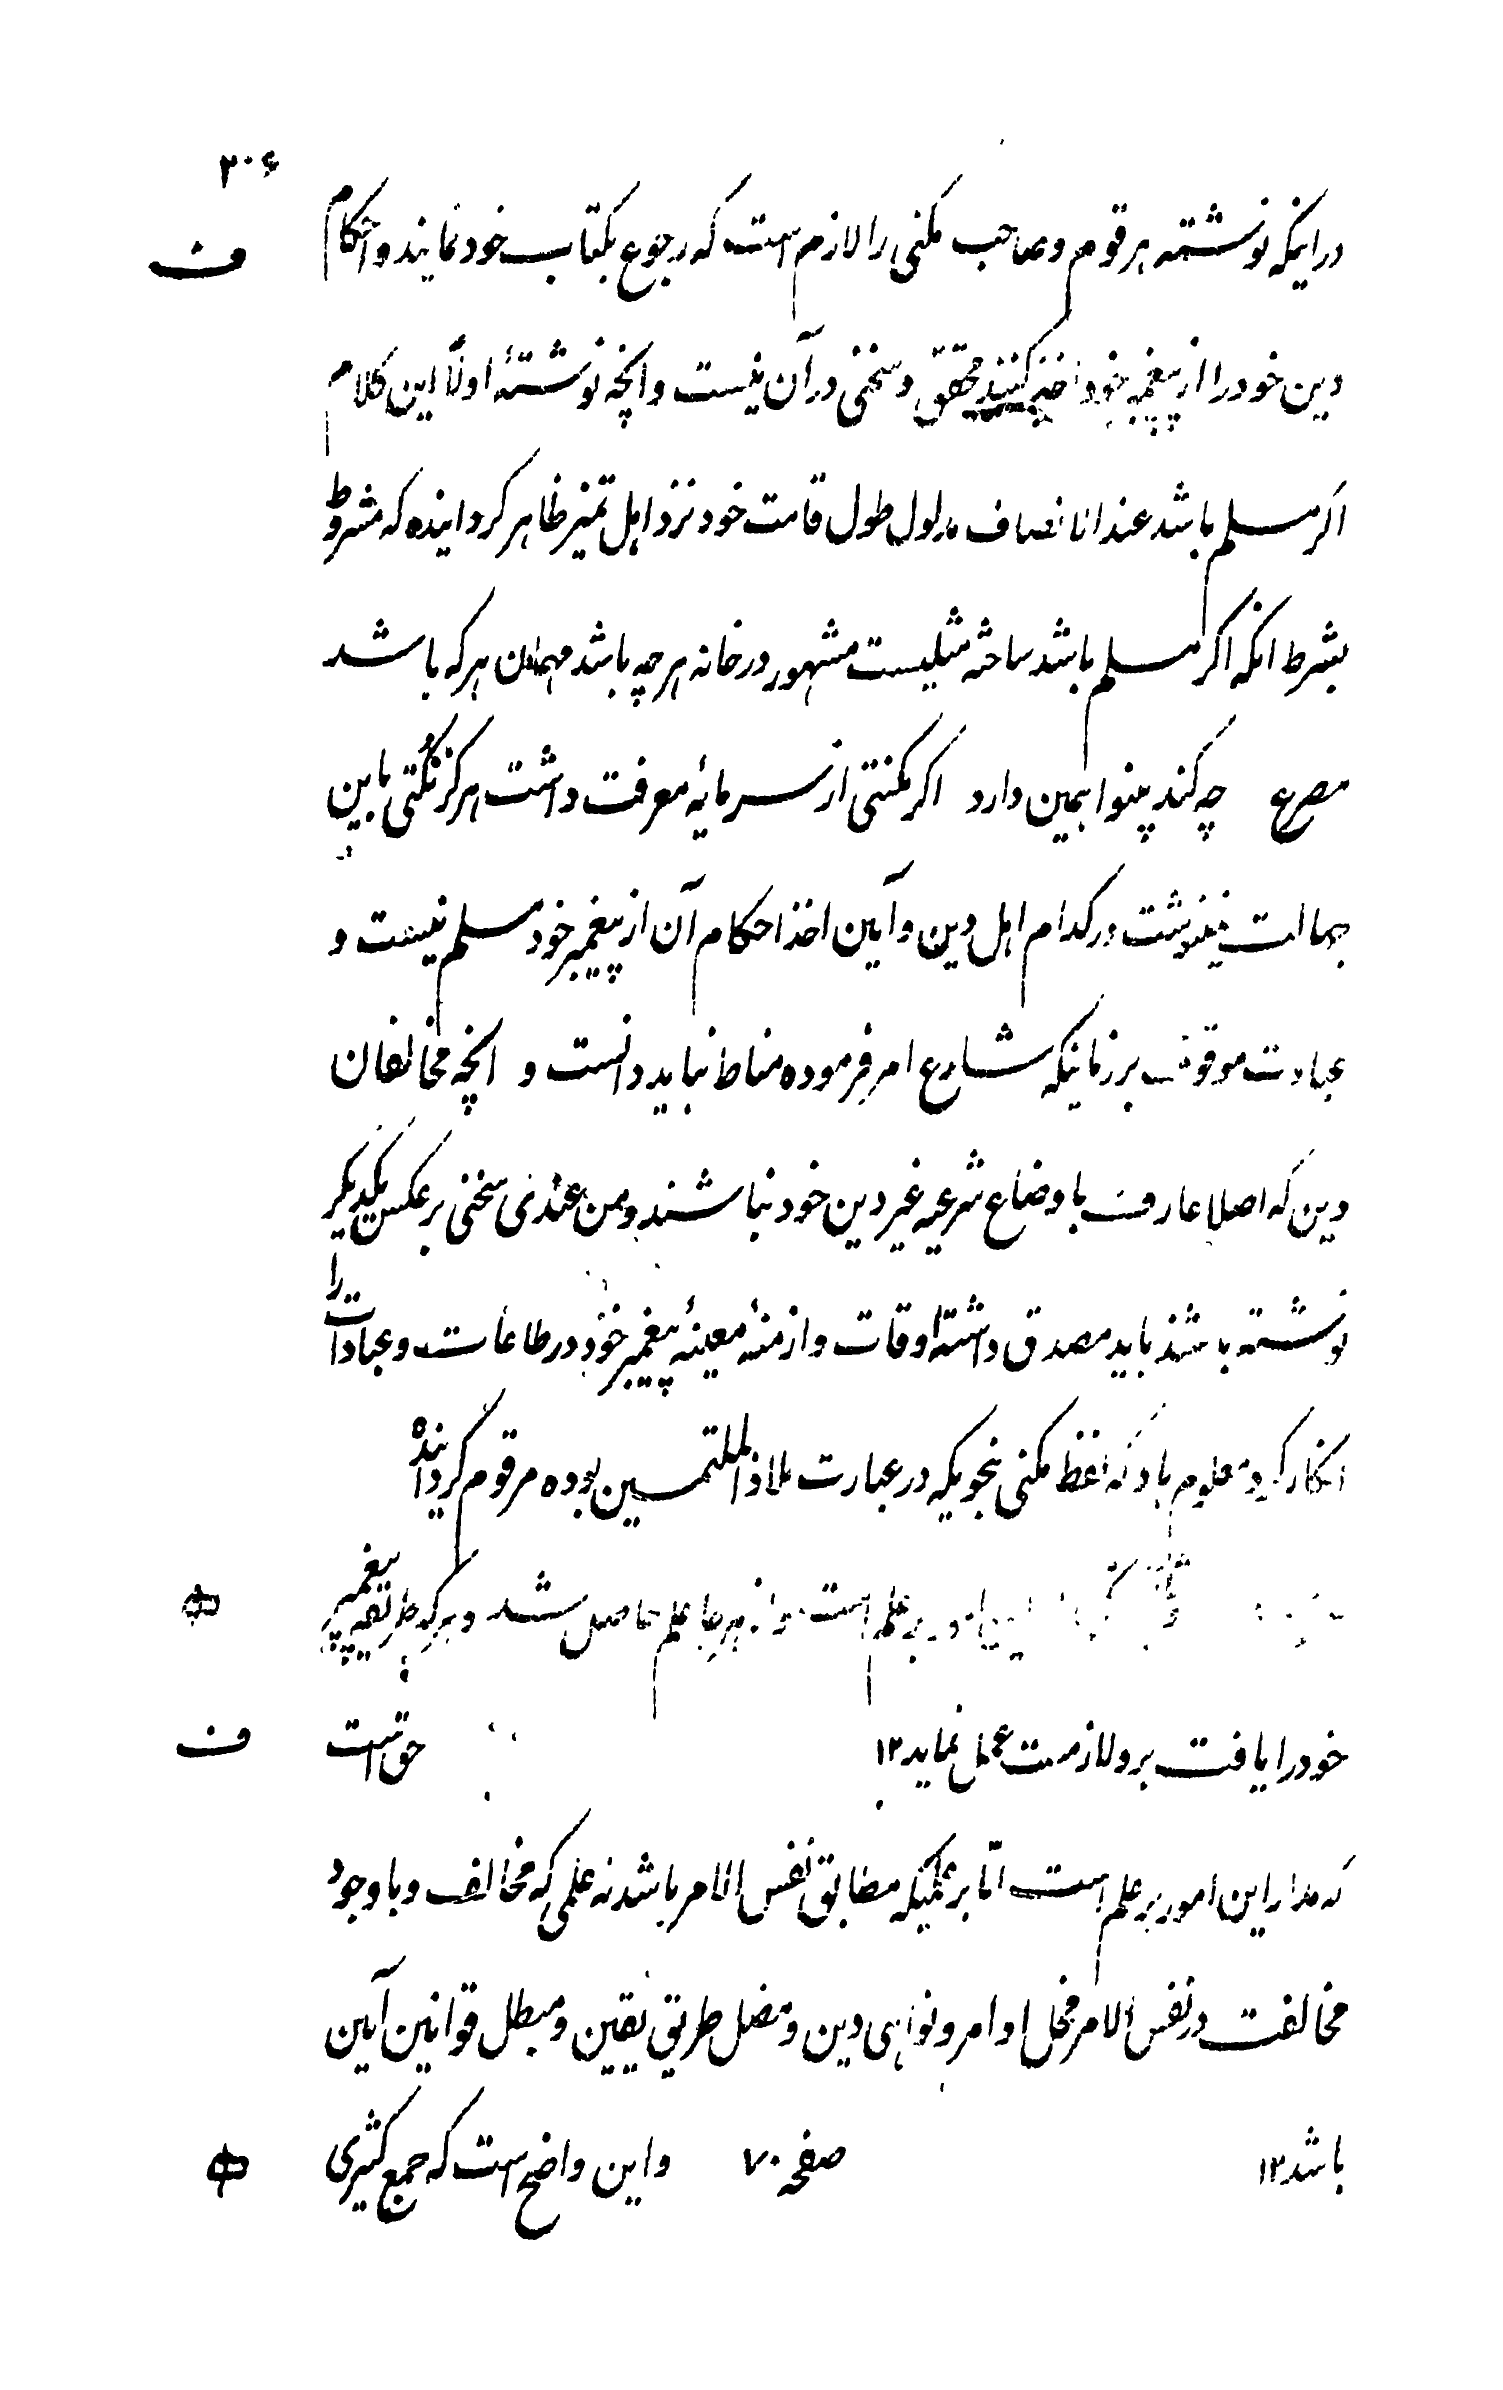 ۲۰۶
در اینکه نوشته هر قوم و صاحب مکنی را لازم است که رجوع بکتاب خود نمایند و احکام
ف
دین خود را از پیغمبر خود اخذ کنند محقق و سخنی در آن نیست و انچه نوشتهٔ اولاً این کلام
اکر مسلم باشد عند الانصاف مدلول طول قامت خود نزد اهل تمیز ظاهر کردانیده که مشروط
بشرط انکه اکر مسلم باشد ساخته مثلیست مشهور در خانه هر چه باشد مهمان هر که باشد
مصرع چه کند بینوا همین دارد اکر مکنتی از سرمایه معرفت داشت هرکز نکتی باین
جهالت نمینوشت در کدام اهل دین و آیین اخذ احکام آن از پیغمبر خود مسلم نیست و
عبادت موقوف بر زمانیکه شارع امر فرموده مناط نباید دانست و انچه مخالفان
دین که اصلا عارف باوضاع شرعیه غیر دین خود نباشند و من عندی سخنی بر عکس یکدیکر
نوشته باشند باید مصدق داشته اوقات و ازمنهٔ معینهٔ پیغمبر خود در طاعات و عبادات را
انکار کرد معلوم باد که لفظ مکنی بنحویکه در عبارت ملاذ الملتمسین بوده مرقوم کردانیده
این امور بر علم است و از هر جا علم حاصل شد و هر که طریقه پیغمبر
خود را یافت برو لازمست عمل نماید ۱۲ حق است
ف
که مدار این امور بر علم است امّا بر علمیکه مطابق نفس الامر باشد نه علمی که مخالف و با وجود
مخالفت در نفس الامر مخل اوامر و نواهی دین و مضل طریق یقین و مبطل قوانین آیین
باشد ۱۲ صفحه ۷۰ و این واضح است که جمع کثیری